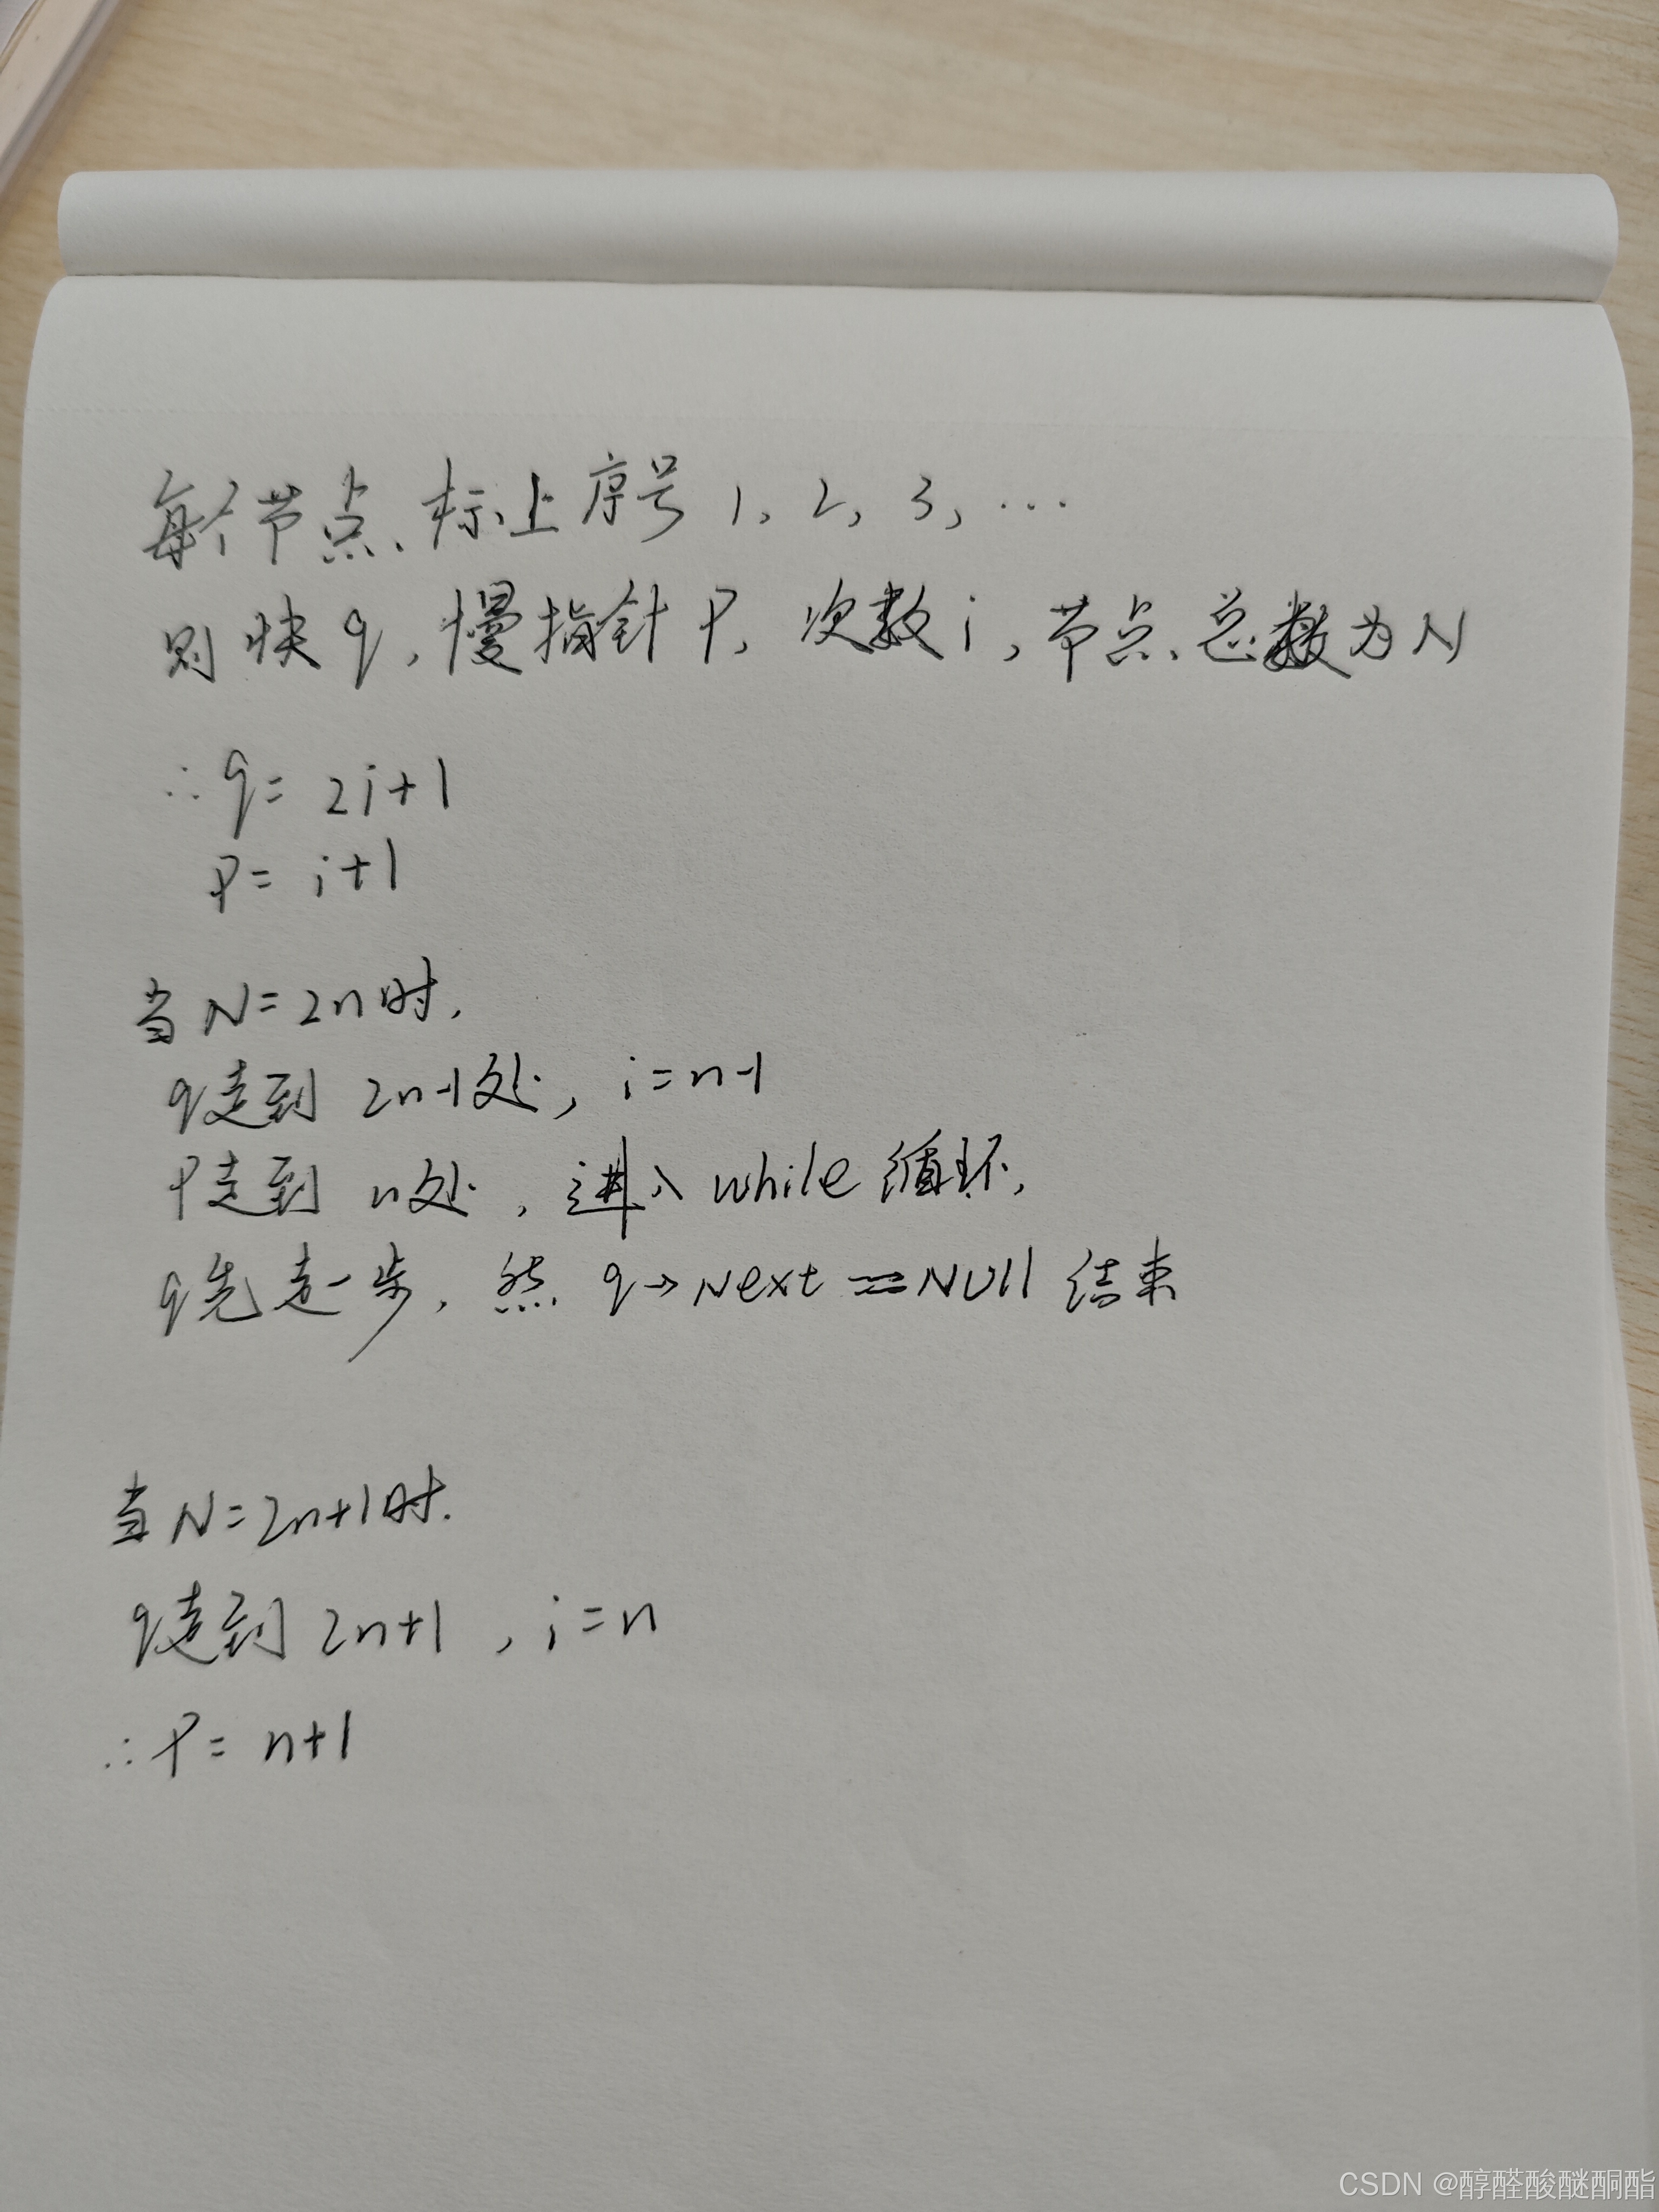 每个节点标上序号 1, 2, 3, …
则快q, 慢指针P, 次数i, 节点总数为N
∴ q = 2i+1
P = i+1
当N=2n时,
q走到 2n-1处, i=n-1
P走到 n处, 进入while循环,
q先走一步, 然 q→Next == NUll 结束
当N=2n+1时.
q走到 2n+1, i=n
∴P= n+1
CSDN @醇醛酸醚酮酯